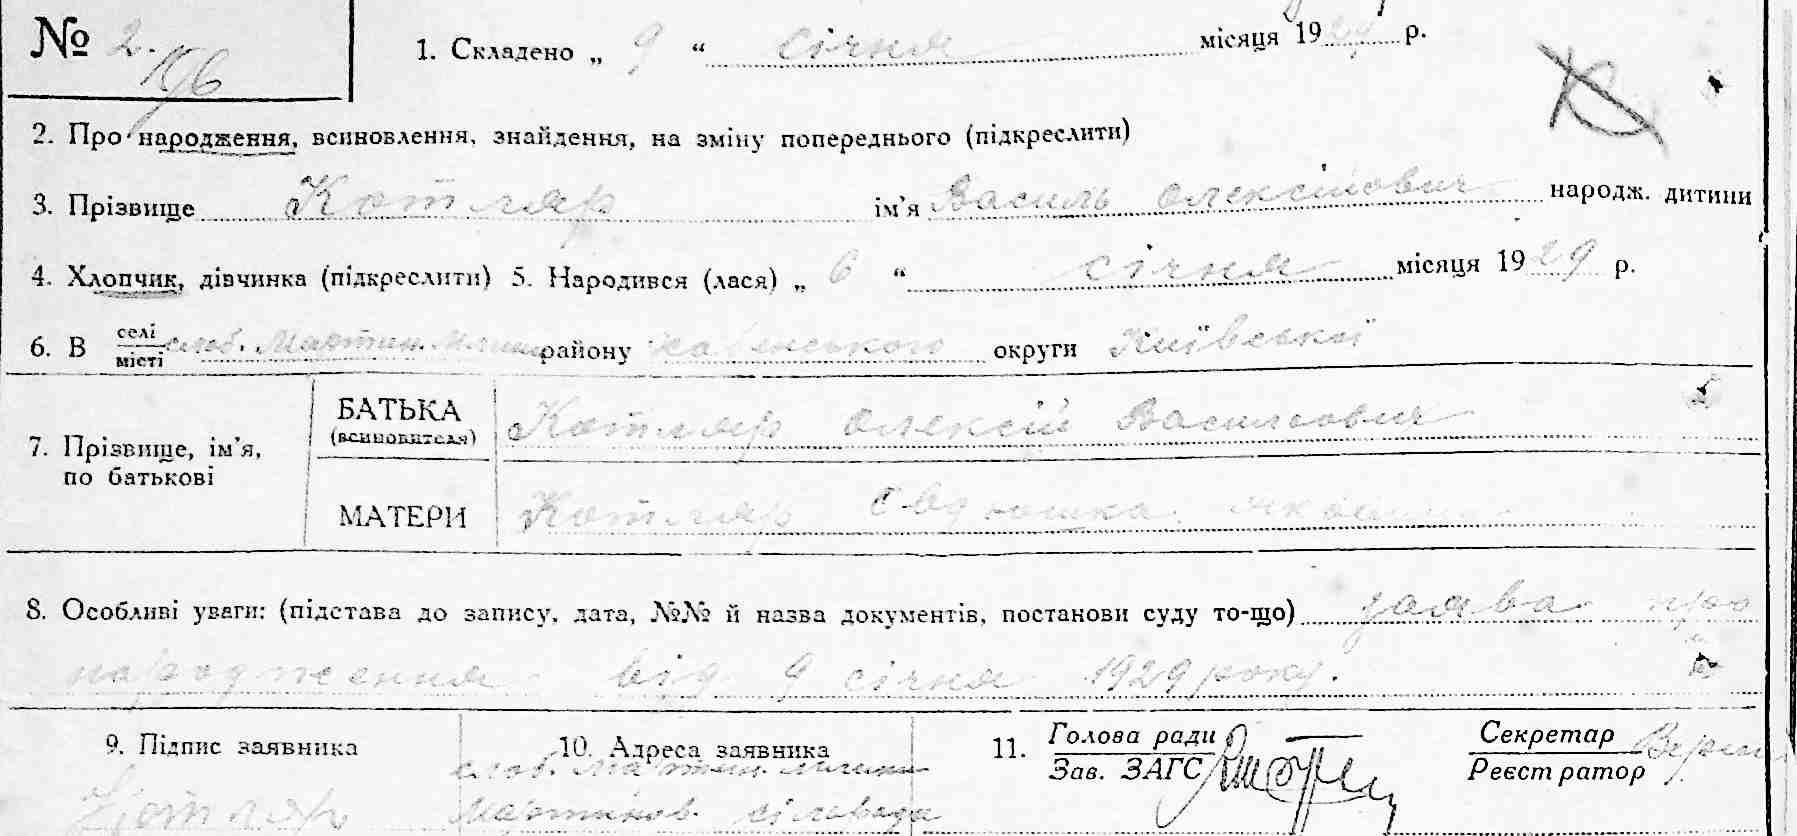 № 2.
1. Складено „ 9 “ січня місяця 1929 р.
196
2. Про народження, всиновлення, знайдення, на зміну попереднього (підкреслити)
3. Прізвище Котляр ім’я Василь Олексійович народж. дитини
4. Хлопчик, дівчинка (підкреслити) 5. Народився (лася) „ 6 “ січня місяця 1929 р.
6. В селі/місті слоб. Мартин. району округи Київської
7. Прізвище, ім’я, по батькові
БАТЬКА (всиновителя) Котляр Олексій Васильович
МАТЕРИ Котляр Явдошка
8. Особливі уваги: (підстава до запису, дата, №№ й назва документів, постанови суду то-що) заява про
народження від 9 січня 1929 року.
9. Підпис заявника
Котляр
10. Адреса заявника
слоб. Мартин.
Мартинов. сільрада
11. Голова ради
Зав. ЗАГС
Секретар
Реєстратор